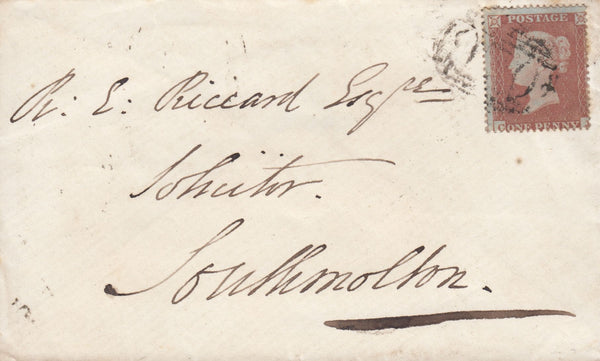 POSTAGE
ONE PENNY
R. E. Riccard Esqre
Solicitor.
Southmolton.